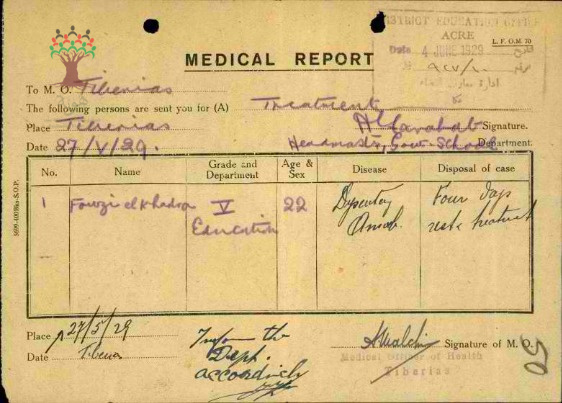 DISTRICT EDUCATION OFFICE
ACRE
L. F. O. M. 70
Date 4 JUNE 1929
MEDICAL REPORT
To M. O. Tiberias
The following persons are sent you for (A) Treatment
Place Tiberias Signature.
Date 27/V/29. Headmaster, Govt. School Department.
No. Name Grade and Department Age & Sex Disease Disposal of case
1 Fawzi el Khadra V Education 22 Dysentery Amoeb. Four days rest & treatment
Place 27/5/29 Inform the Signature of M. O.
Date Tiberias Deptt. Medical Officer of Health
accordingly Tiberias
50